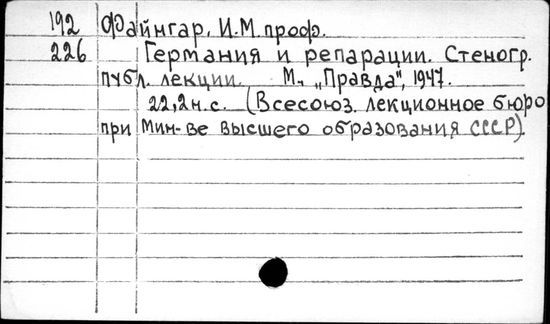 192 Файнгар, И.М. проф.
226 Германия и репарации. Стеногр.
публ. лекции. М., „Правда", 1947.
22,2н.с. (Всесоюз. лекционное бюро
при Мин-ве высшего образования СССР)